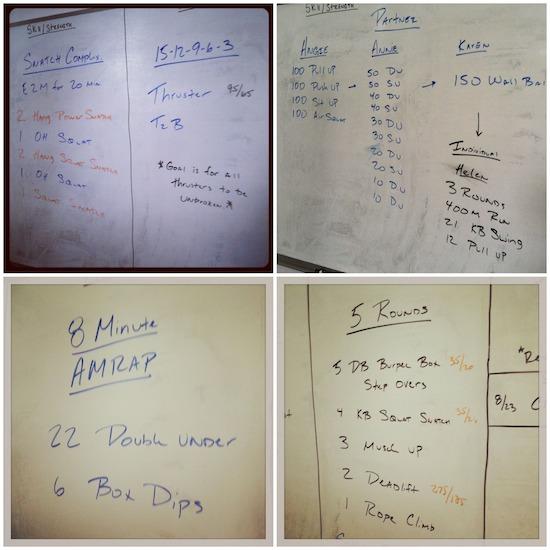 Skill/Strength
Snatch Complex
E2M for 20 min
2 Hang Power Snatch
1 OH Squat
2 Hang Squat Snatch
1 OH Squat
1 Squat Snatch
15-12-9-6-3
Thruster 95/65
T2B
* Goal is for all
thrusters to be
unbroken *
Skill/Strength
Partner
Angie
100 Pull up
100 Push up
100 Sit up
100 Air Squat
→
Annie
50 DU
50 SU
40 DU
40 SU
30 DU
30 SU
20 DU
20 SU
10 DU
10 DU
→
Karen
150 Wall Bal
↓
Individual
Helen
3 Rounds
400m Run
21 KB Swing
12 Pull up
8 Minute
AMRAP
22 Double under
6 Box Dips
5 Rounds
5 DB Burpee Box 35/20
Step Overs
4 KB Squat Snatch 35/
3 Muscle up
2 Deadlift 275/185
1 Rope Climb
*Re
8/23 C